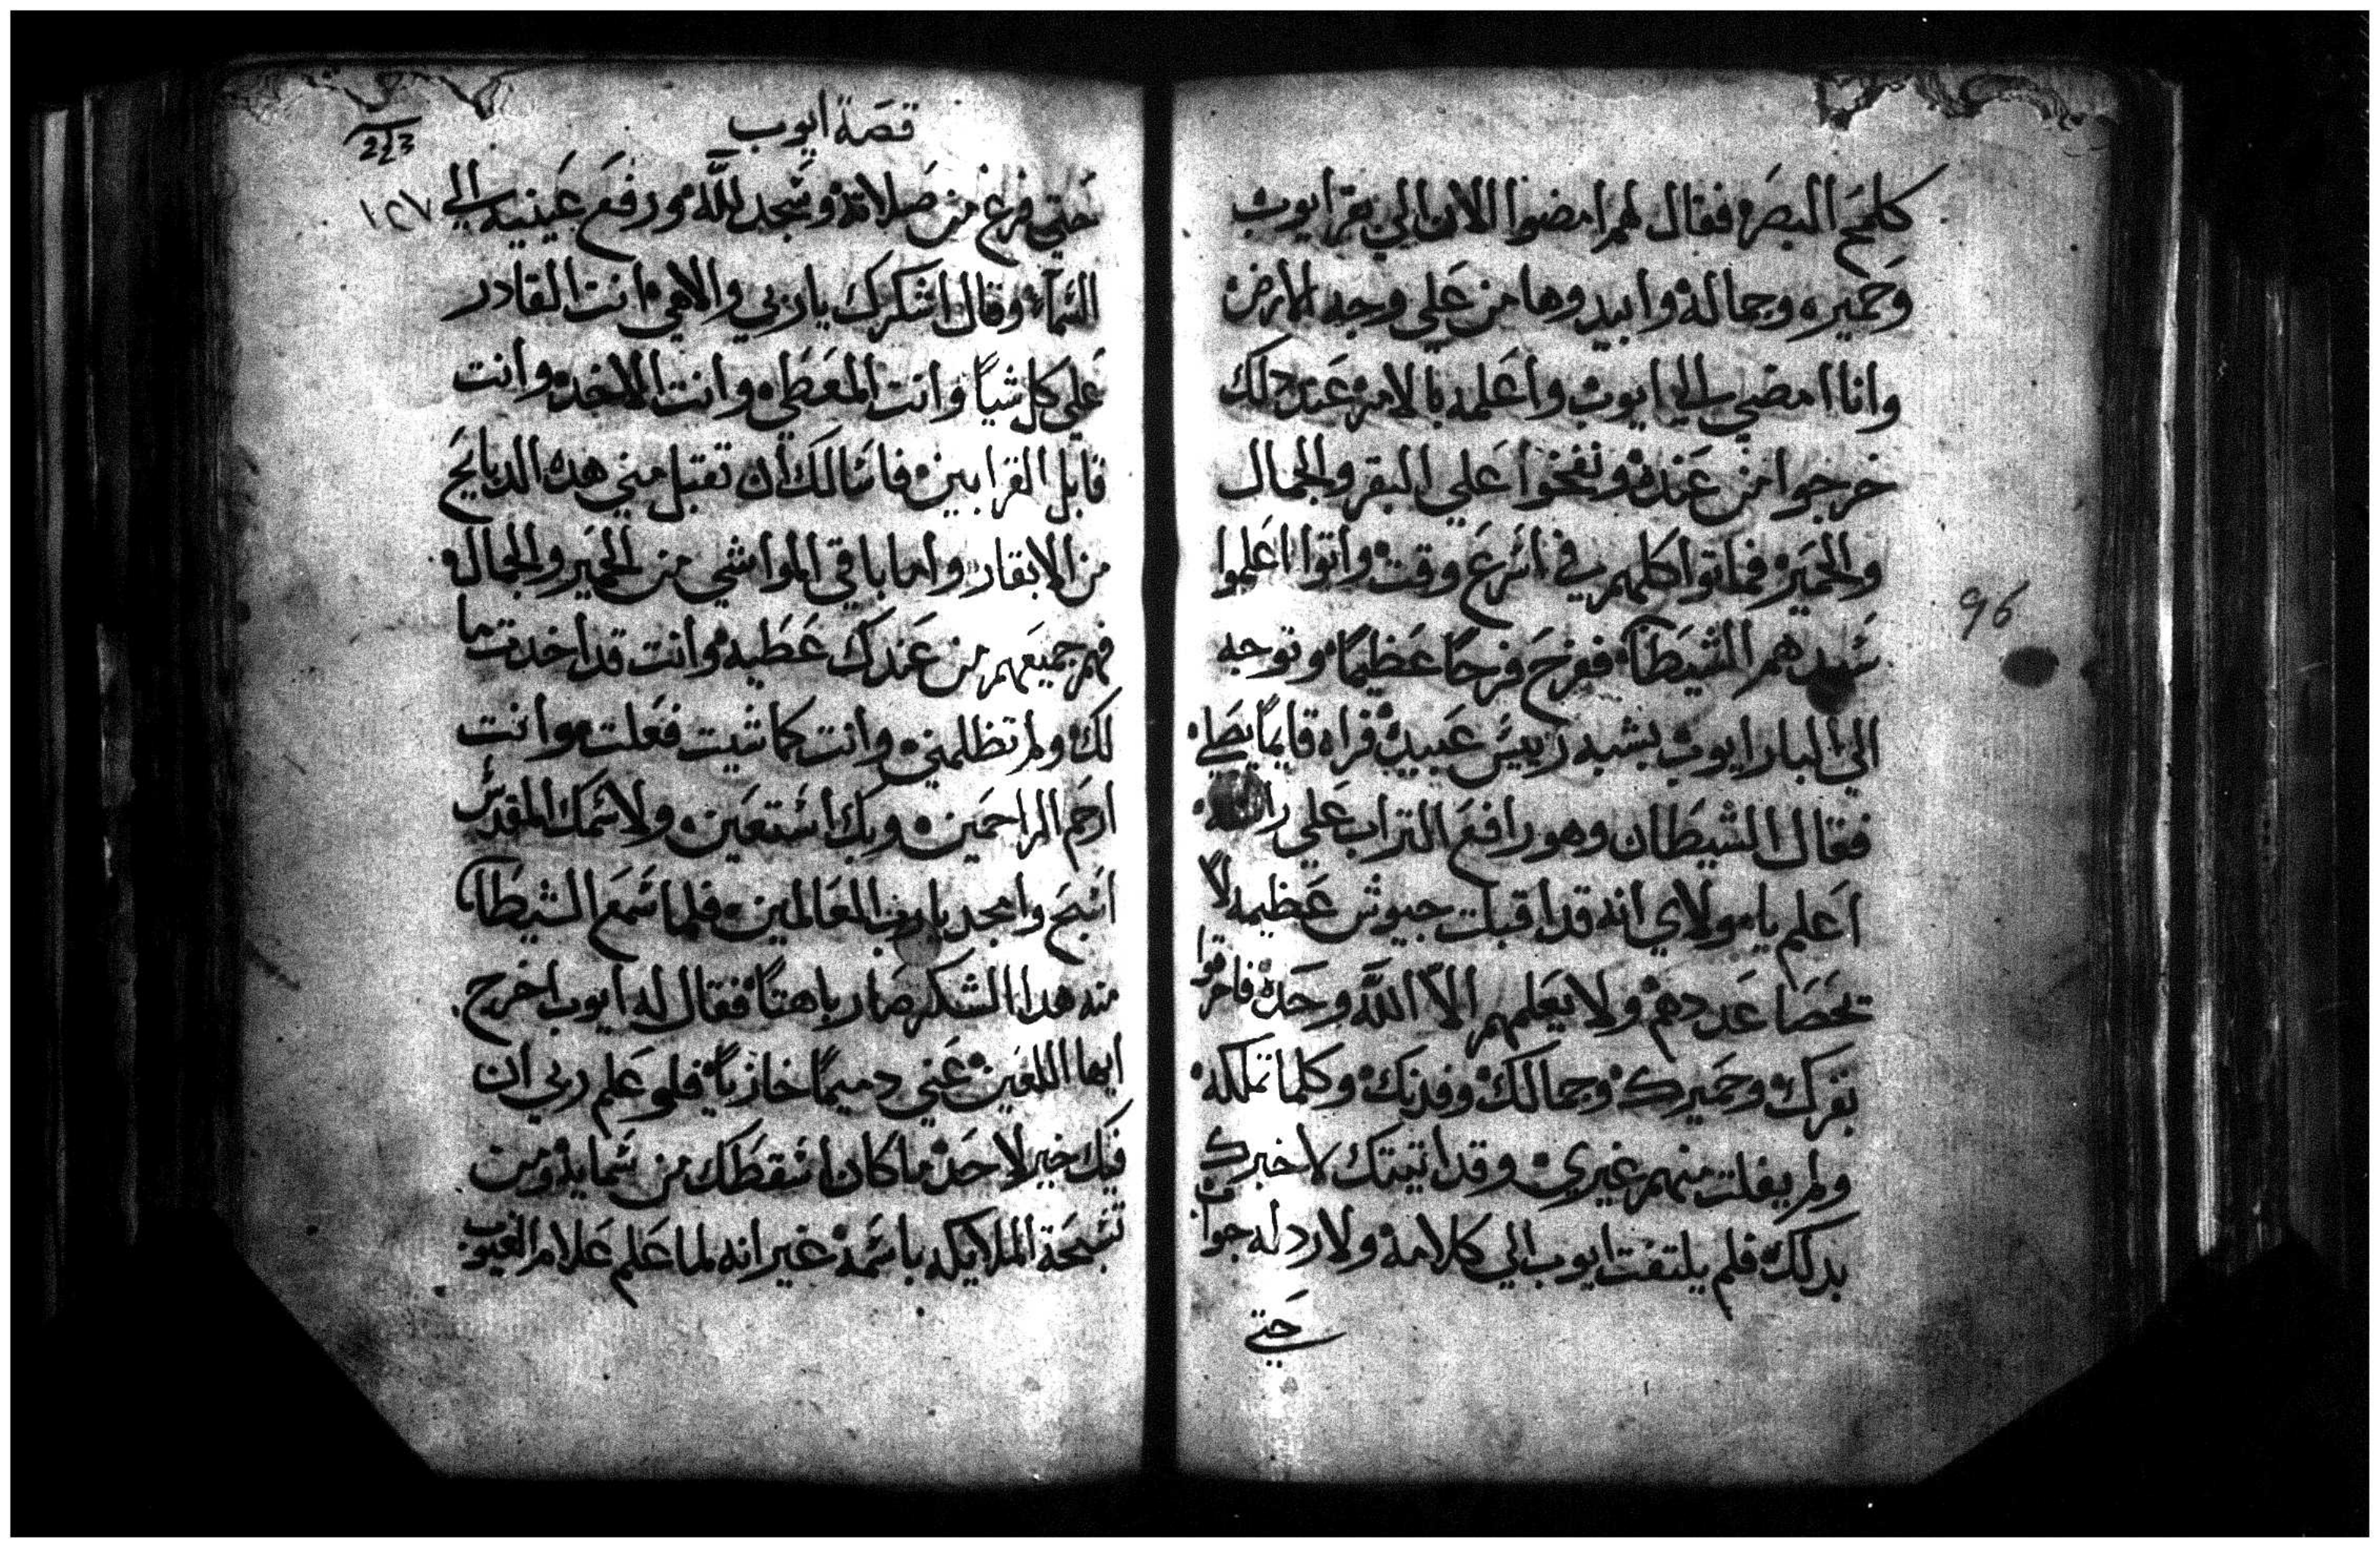 كلمح البصر فقال لهم امضوا الان الي بقر ايوب
وحميره وجماله وابيدوها من علي وجه الارض
وانا امضي الي ايوب واعلمه بالامر عند دلك
خرجوا من عنده ونفخوا علي البقر والجمال
والحمير فماتوا كلهم في اسرع وقت واتوا اعلموا
سيدهم الشيطان ففرح فرحاً عظيماً وتوجه
الي البار ايوب بشبه رييس عبيده فراه قايماً يصلي
فقال الشيطان وهو رافع التراب علي راسه
اعلم يا مولاي انه قد اقبلت جيوش عظيمه لا
تحصا عددهم ولا يعلمهم الاّ اللّه وحده فاحرقوا
بقرك وحميرك وجمالك وفدنك وكلما تملكه
ولم يفلت منهم غيري وقد اتيتك لاخبرك
بدلك فلم يلتفت ايوب الي كلامه ولا رد له جواب
حتي
96
قصة ايوب
223
١٢٧
حتي فرغ من صلاته وسجد للّه ورفع عينيه الي
السماء وقال اشكرك يا ربي والاهي انت القادر
علي كل شياً وانت المعطي وانت الاخد وانت
قابل القرابين فاسالك ان تقبل مني هده الدبايح
من الابقار واما باقي المواشي من الحمير والجمال
فهم جميعهم من عندك عطيه وانت قد اخدت ما
لك ولم تظلمني وانت كما شيت فعلت وانت
ارحم الراحمين وبك استعين ولاسمك المقدس
اسبح وامجد يا رب العالمين فلما سمع الشيطان
منه هدا الشكر صار باهتاً فقال له ايوب اخرج
ايها اللعين عني دميماً خازياً فلو علم ربي ان
فيك خير لاحد ما كان اسقطك من سمايه ومن
تسبحة الملايكه باسمه غير انه لما علم علام الغيوب